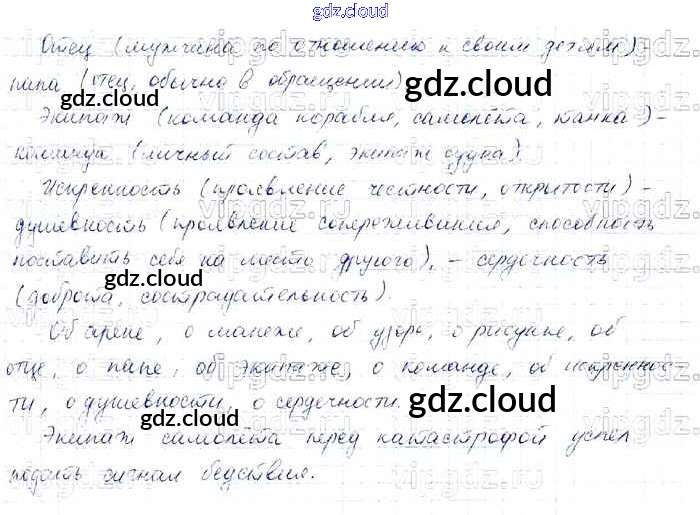 gdz.cloud
Отец (мужчина по отношению к своим детям) -
папа (отец, обычно в обращении)
gdz.cloud
Экипаж (команда корабля, самолёта, танка) -
команда (личный состав, экипаж судна).
gdz.cloud
Искренность (проявление честности, открытости) -
душевность (проявление сопереживания, способность
поставить себя на место другого), - сердечность
gdz.cloud
(доброта, сострадательность).
gdz.cloud
Об арене, о манеже, об узоре, о рисунке, об
отце, о папе, об экипаже, о команде, об искреннос-
ти, о душевности, о сердечности.
gdz.cloud
gdz.cloud
Экипаж самолёта перед катастрофой успел
подать сигнал бедствия.